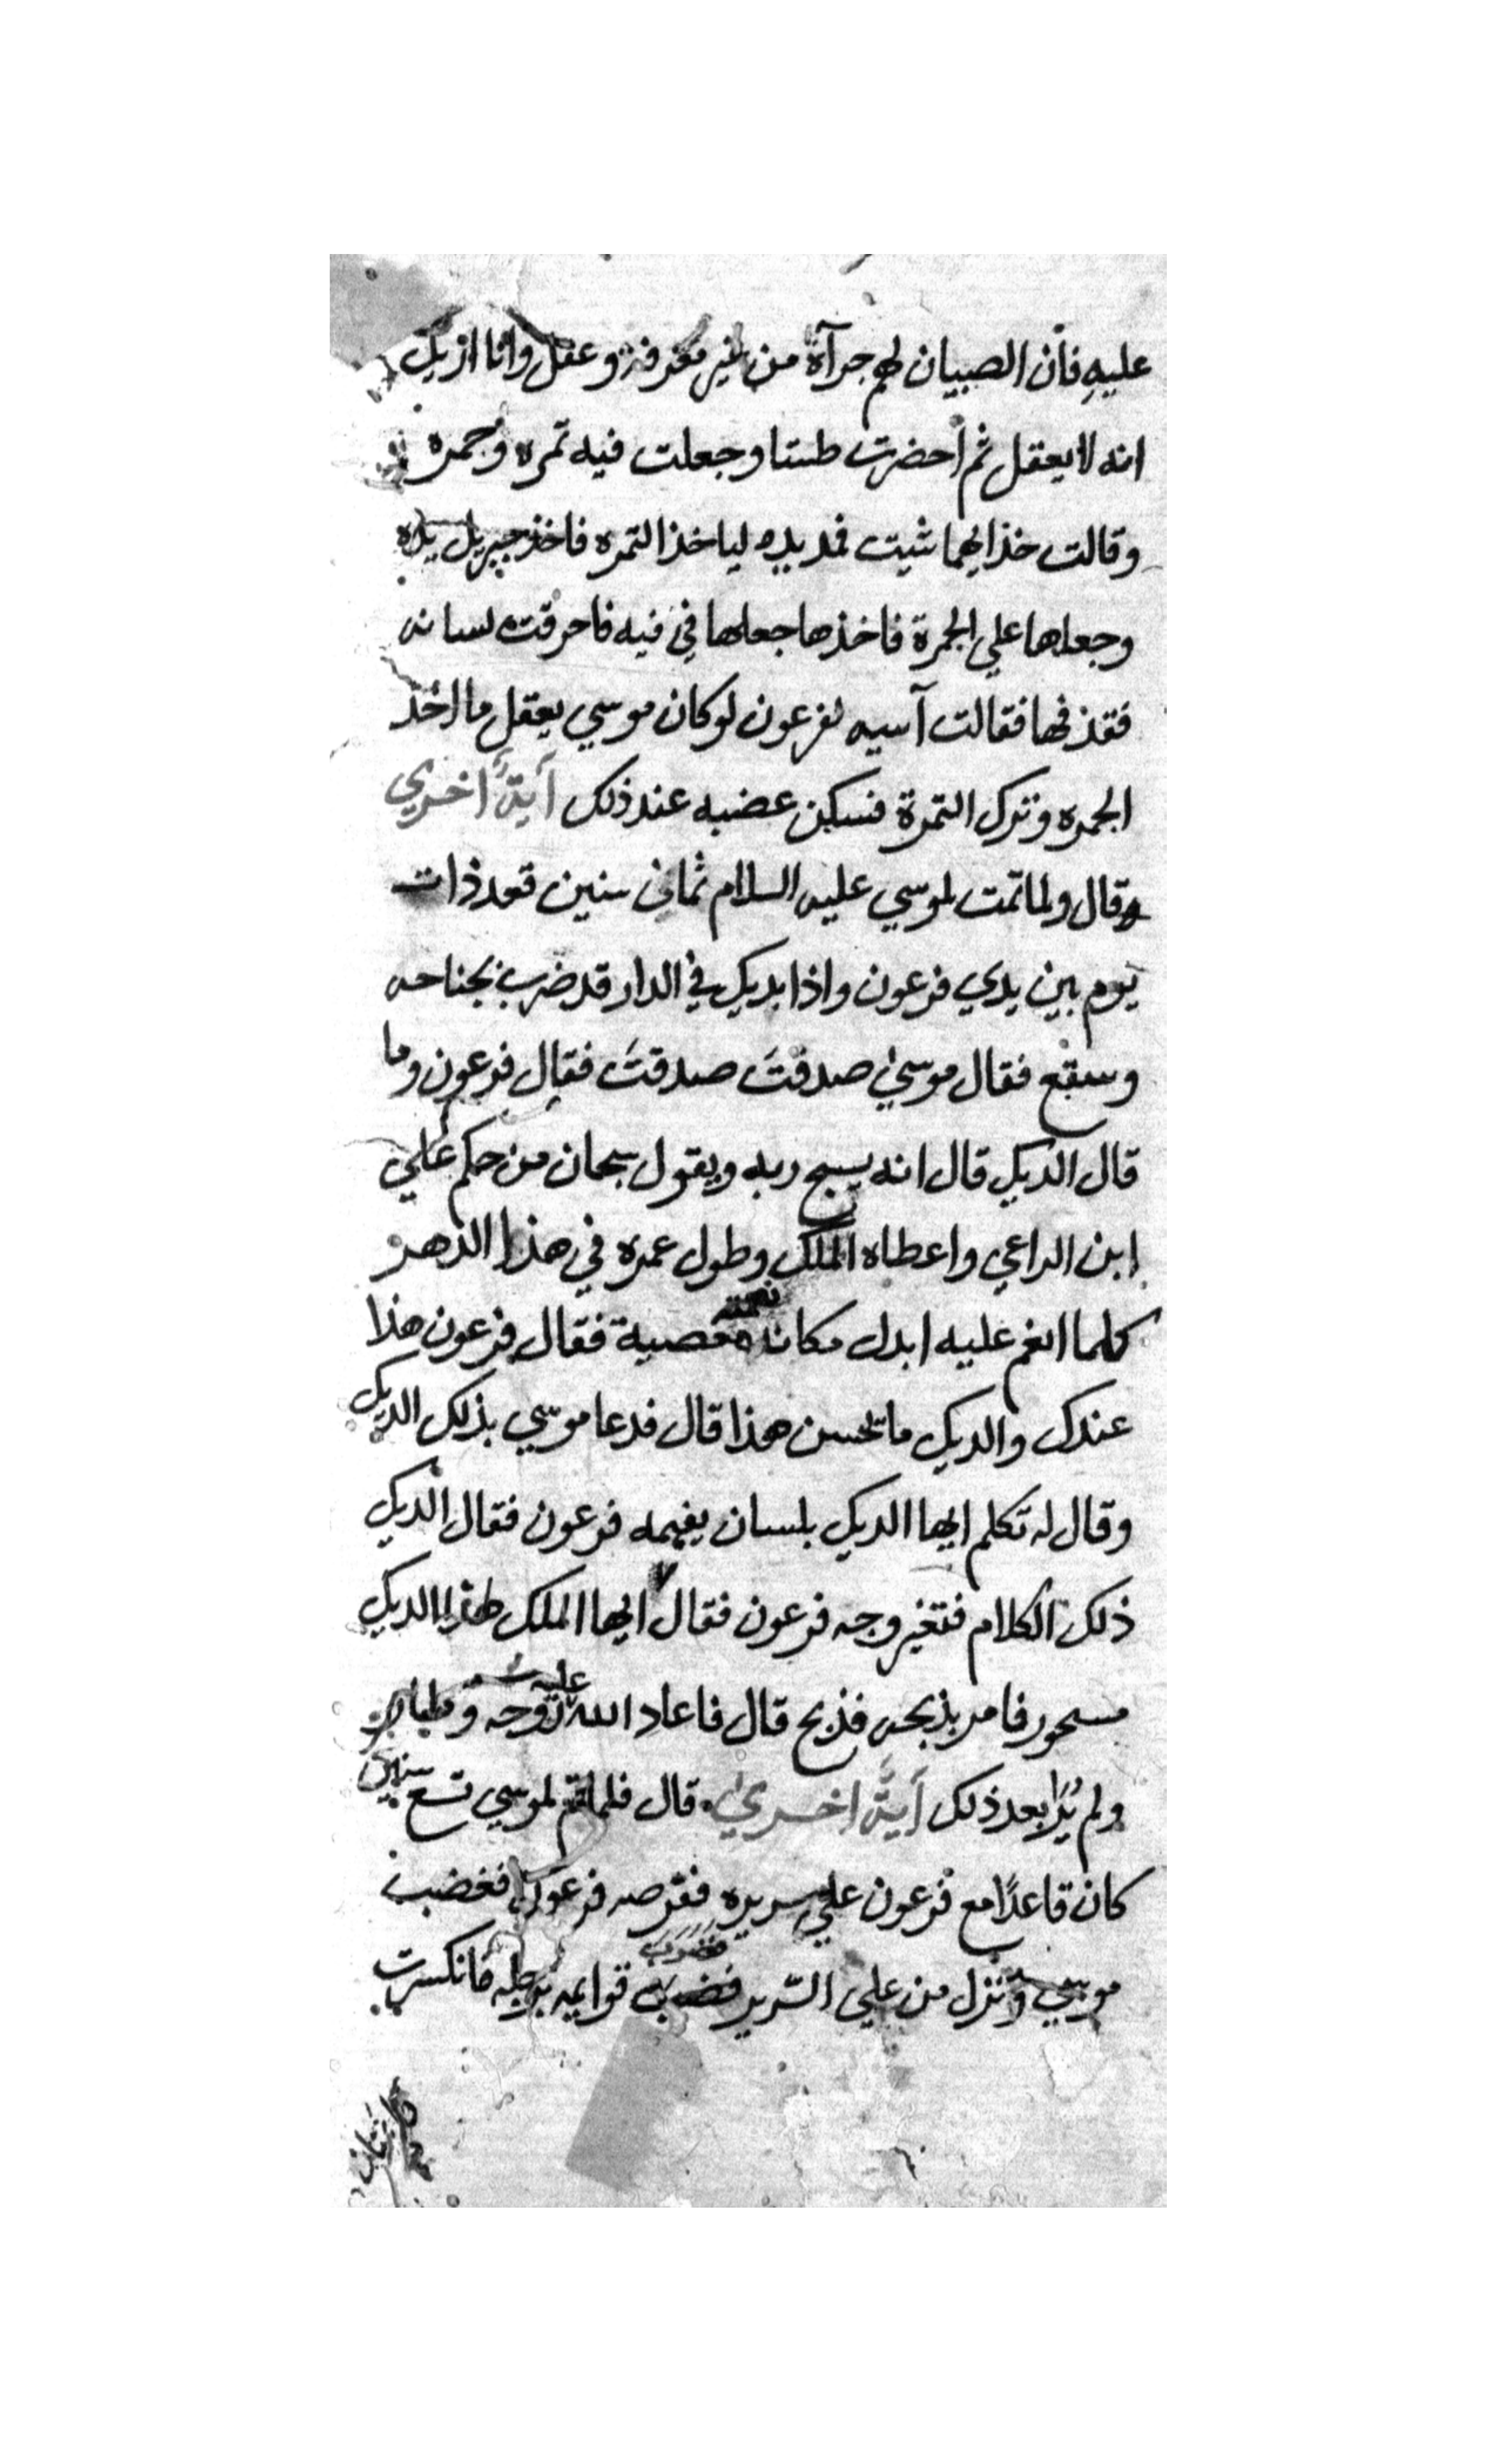 عليهِ فأن الصبيان لهم جرآة من غير معرفة وعقل وانا اريك
انه لا يعقل ثم احضرت طستا وجعلت فيه تمره وجمره
وقالت خذ ايهما شيت فمد يده لياخذ التمره فاخذ جبريل يده
وجعلها علي الجمرة فاخذها جعلها في فيه فاحرقت لسانه
فقذفها فقالت آسيه لفرعون لو كان موسي يعقل ما اخذ
الجمره وترك التمرة فسكن غضبه عند ذلك آيةً اخري
وقال ولما تمت لموسي عليه السلام ثمان سنين قعد ذات
يوم بين يدي فرعون واذا بديك في الدار قد ضرب بجناحه
وسقع فقال موسي صدقتَ صدقتَ فقال فرعون وما
قال الديك قال انه يسبح ربه ويقول سبحان من حكم علي
ابن الراعي واعطاه الملك وطول عمره في هذا الدهر
كلما انعم عليه ابدل مكان نعمته معصية فقال فرعون هذا
عندك والديك ما تحسن هذا قال فدعا موسي بذلك الديك
وقال له تكلم ايها الديك بلسان يفهمه فرعون فقال الديك
ذلك الكلام فتغير وجه فرعون فقال ايها الملك هذا الديك
مسحور فامر بذبحه فذبح قال فاعاد الله عليه روحه وطار
ولم يُرا بعد ذلك آيةً اخري قال فلما تم لموسي تسع سنين
كان قاعدًا مع فرعون علي سريره فقرصه فرعون فغضب
موسي ونزل من علي السّرير فضرب قوايمه برجله فانكسرت